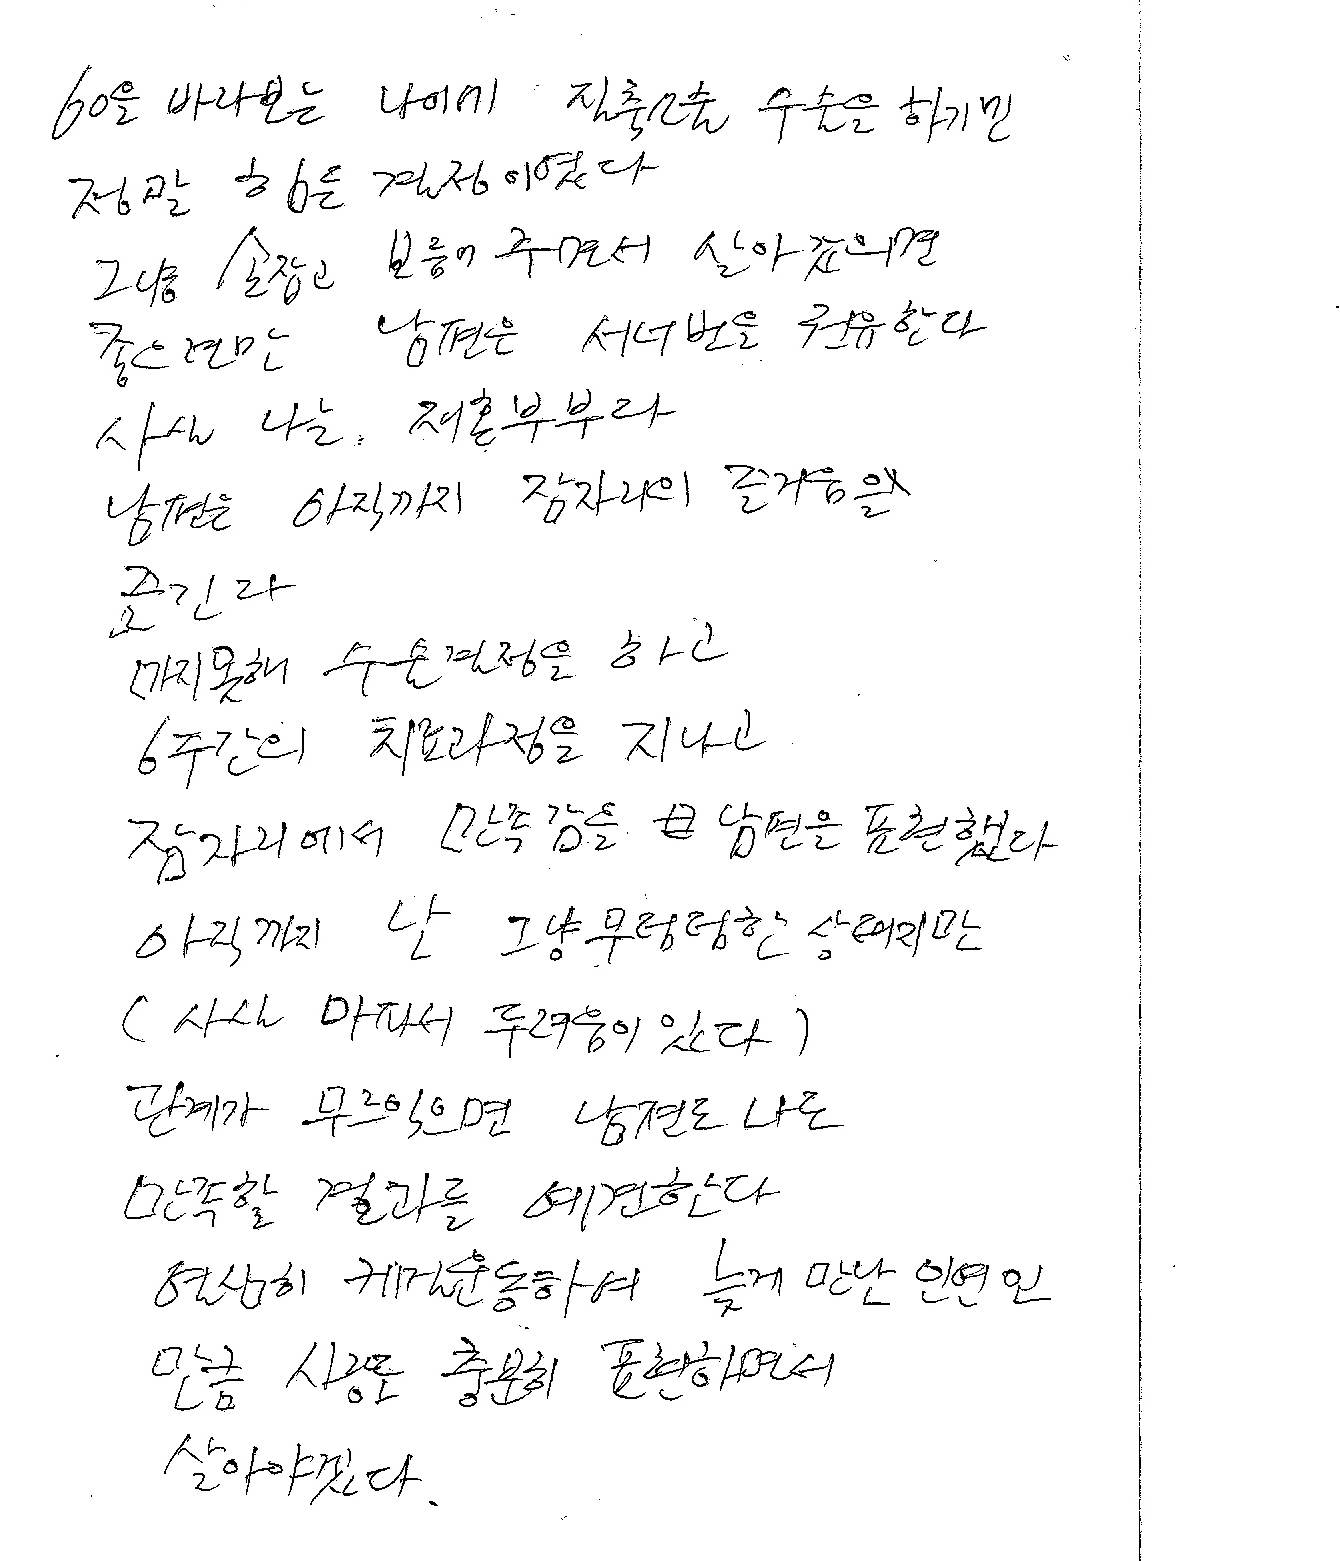 60을 바라보는 나이에 질축소술 수술을 하기란
정말 힘든 결정이였다
그냥 손잡고 보듬어 주면서 살아갔으면
좋으련만 남편은 서너번을 권유한다
사실 나는. 재혼부부라
남편은 아직까지 잠자리의 즐거움을
즐긴다
마지못해 수술결정을 하고
6주간의 치료과정을 지나고
잠자리에서 만족감을 남편은 표현했다
아직까지 난 그냥 무덤덤한 상태지만
(사실 아파서 두려움이 있다)
관계가 무르익으면 남편도 나도
만족할 결과를 예견한다
열심히 케겔운동하여 늦게 만난 인연인
만큼 사랑도 충분히 표현하면서
살아야겠다.